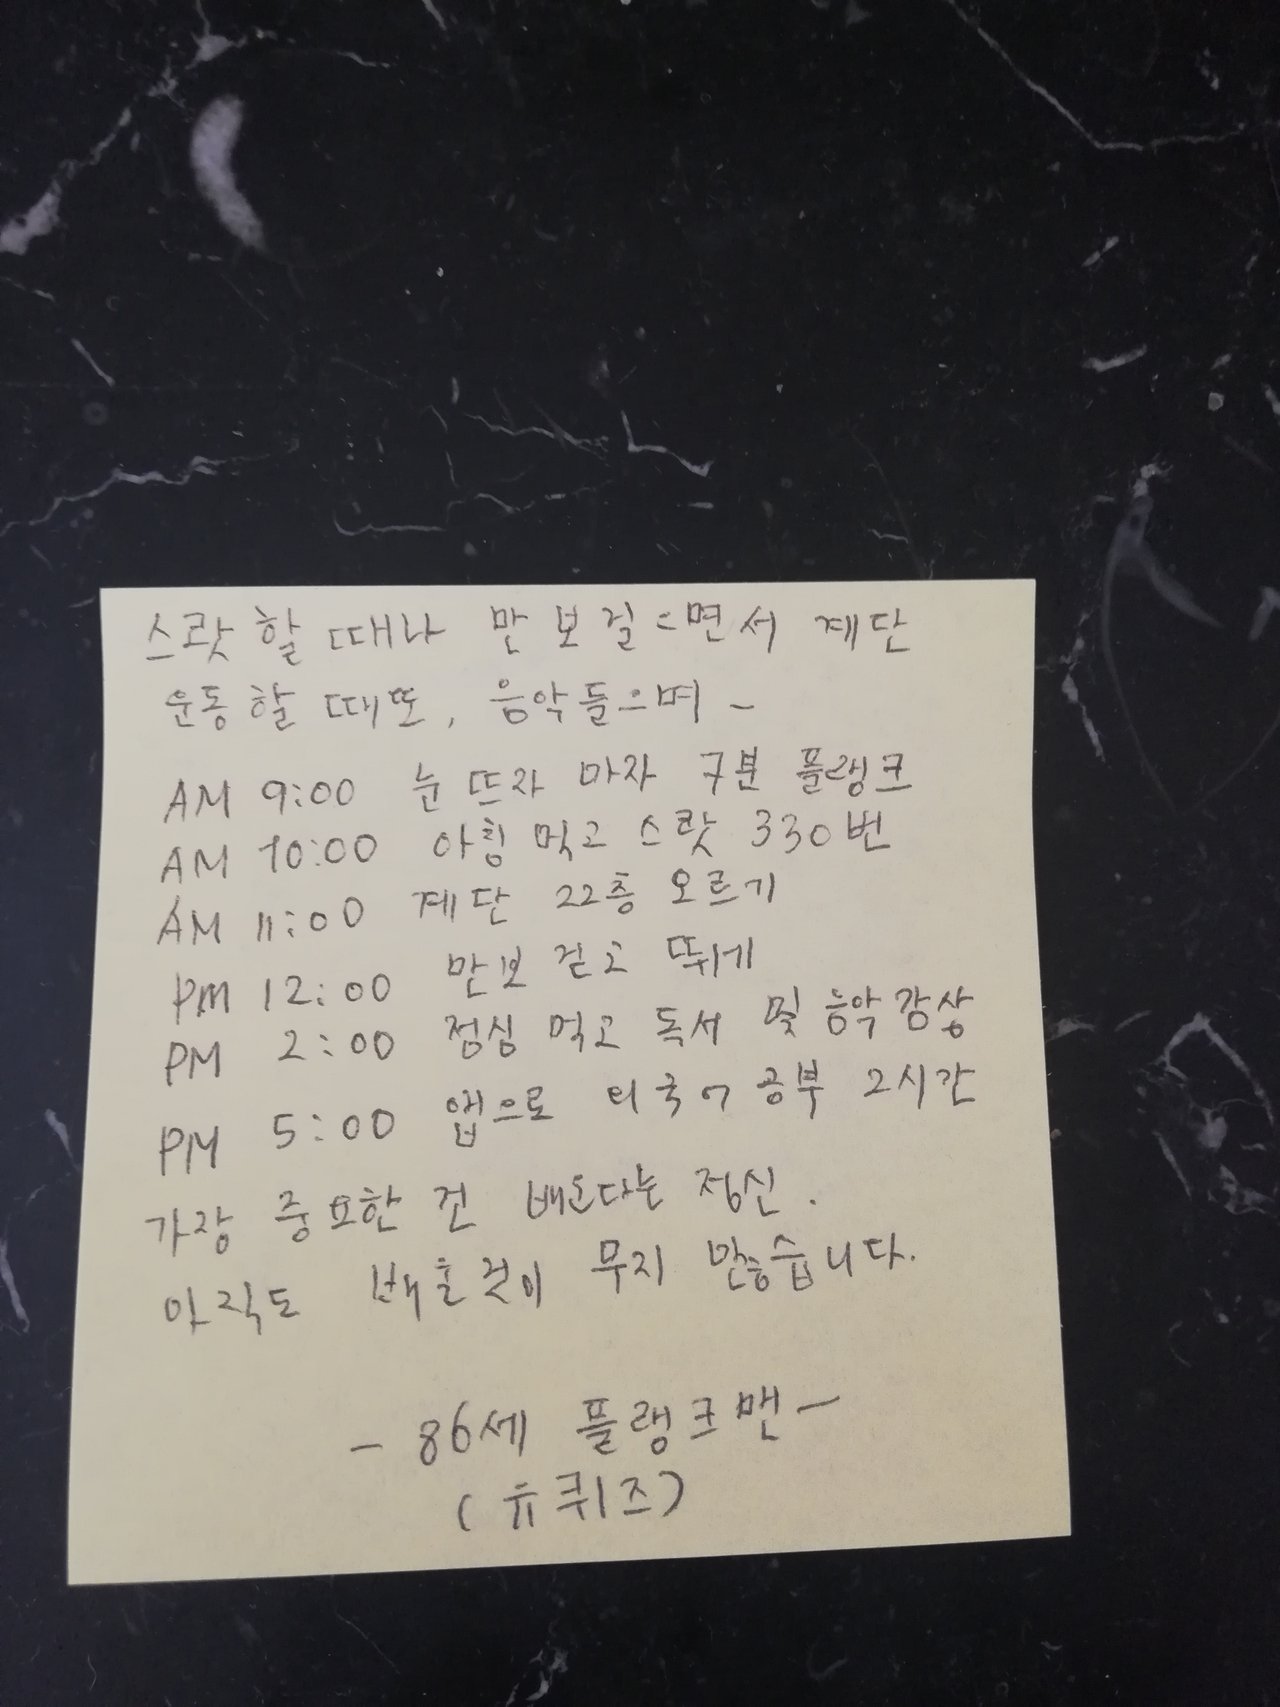 스쾃할 때나 만보걸으면서 계단
운동할 때또, 음악들으며 -
AM 9:00 눈 뜨자 마자 7분 플랭크
AM 10:00 아침 먹고 스쾃 330번
AM 11:00 계단 22층 오르기
PM 12:00 만보 걷고 뛰기
PM 2:00 점심 먹고 독서 및 음악감상
PM 5:00 앱으로 외국어 공부 2시간
가장 중요한 건 배운다는 정신.
아직도 배울것이 무지 많습니다.
- 86세 플랭크맨 -
(유퀴즈)